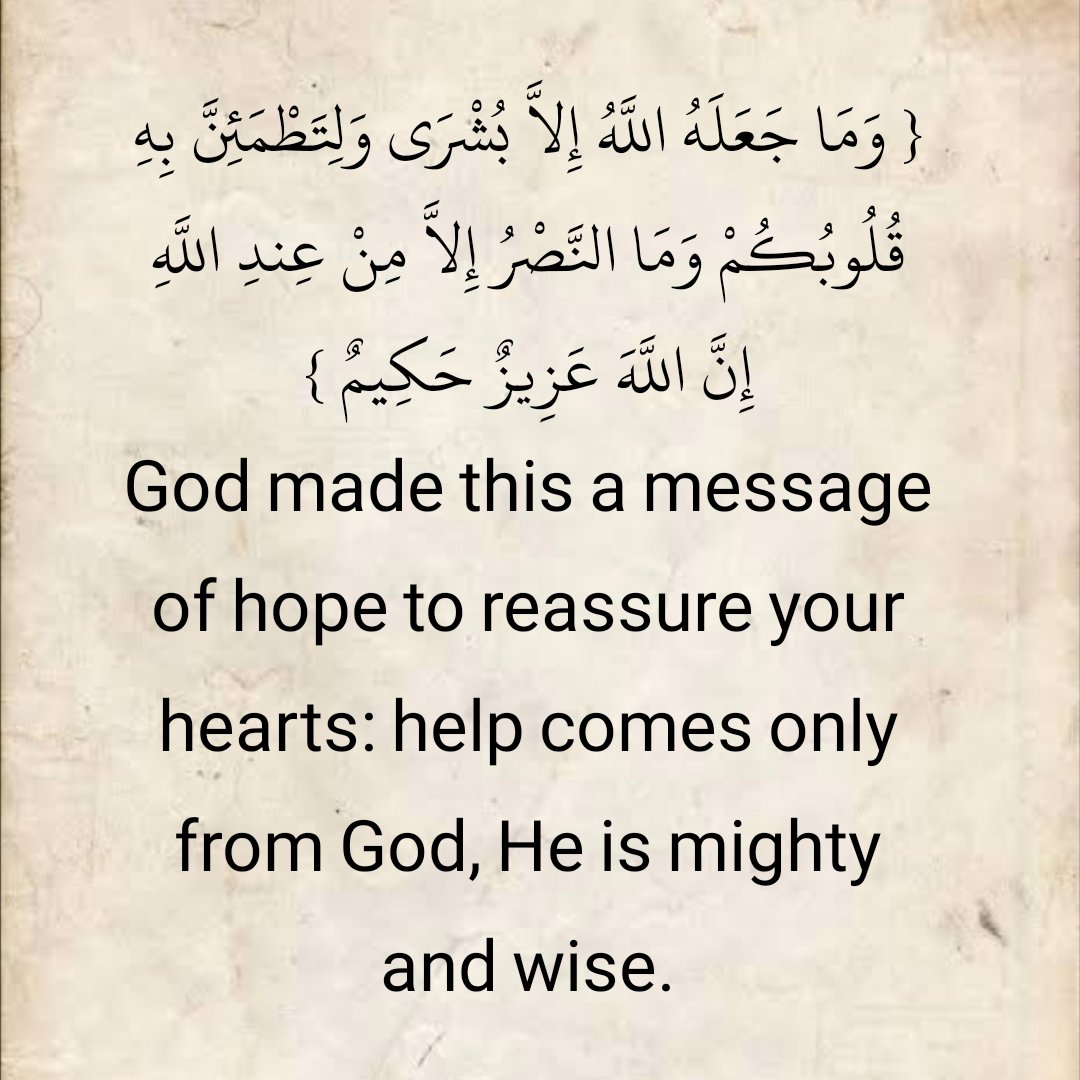 { وَمَا جَعَلَهُ اللَّهُ إِلاَّ بُشْرَى وَلِتَطْمَئِنَّ بِهِ
قُلُوبُكُمْ وَمَا النَّصْرُ إِلاَّ مِنْ عِندِ اللَّهِ
إِنَّ اللَّهَ عَزِيزٌ حَكِيمٌ }
God made this a message
of hope to reassure your
hearts: help comes only
from God, He is mighty
and wise.